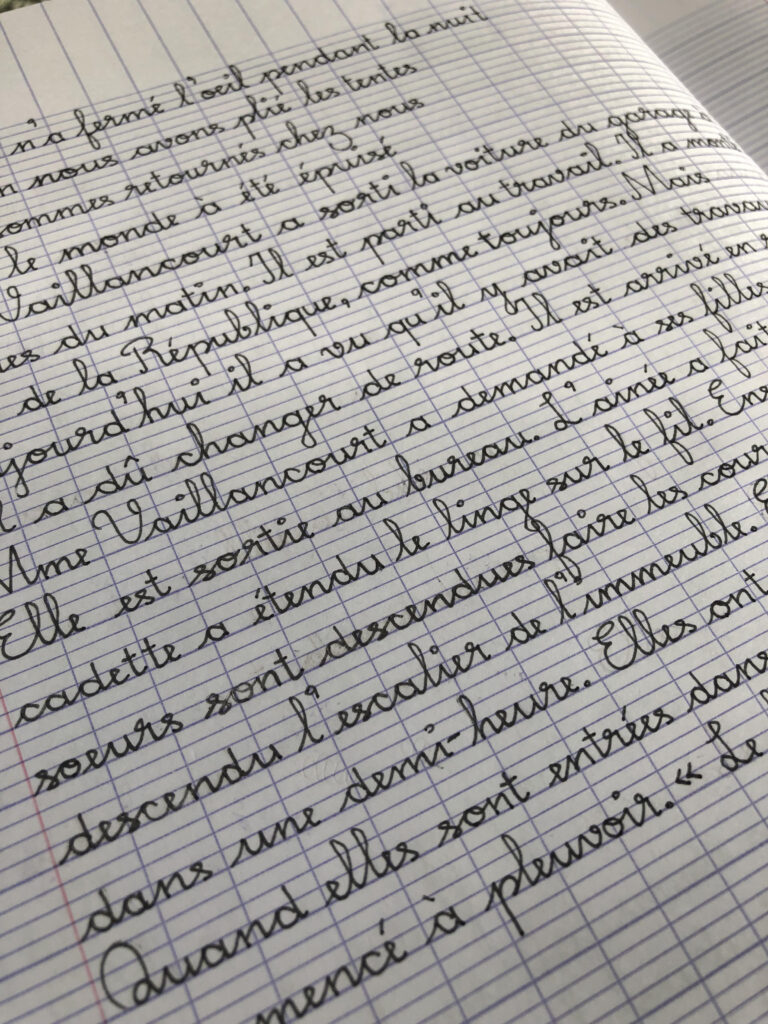 n'a fermé l'oeil pendant la nuit
nous avons plié les tentes
sommes retournés chez nous
le monde à été épuisé
Vaillancourt a sorti la voiture du garage
du matin. Il est parti au travail. Il a
de la République, comme toujours. Mais
aujourd'hui il a vu qu'il y avait des
il a dû changer de route. Il est arrivé en
Mme Vaillancourt a demandé à ses filles
Elle est sortie au bureau. L'ainée a fait
cadette a étendu le linge sur le fil.
soeurs sont descendues faire les
descendu l'escalier de l'immeuble.
dans une demi-heure. Elles ont
Quand elles sont entrées dans
mencé à pleuvoir. « Le